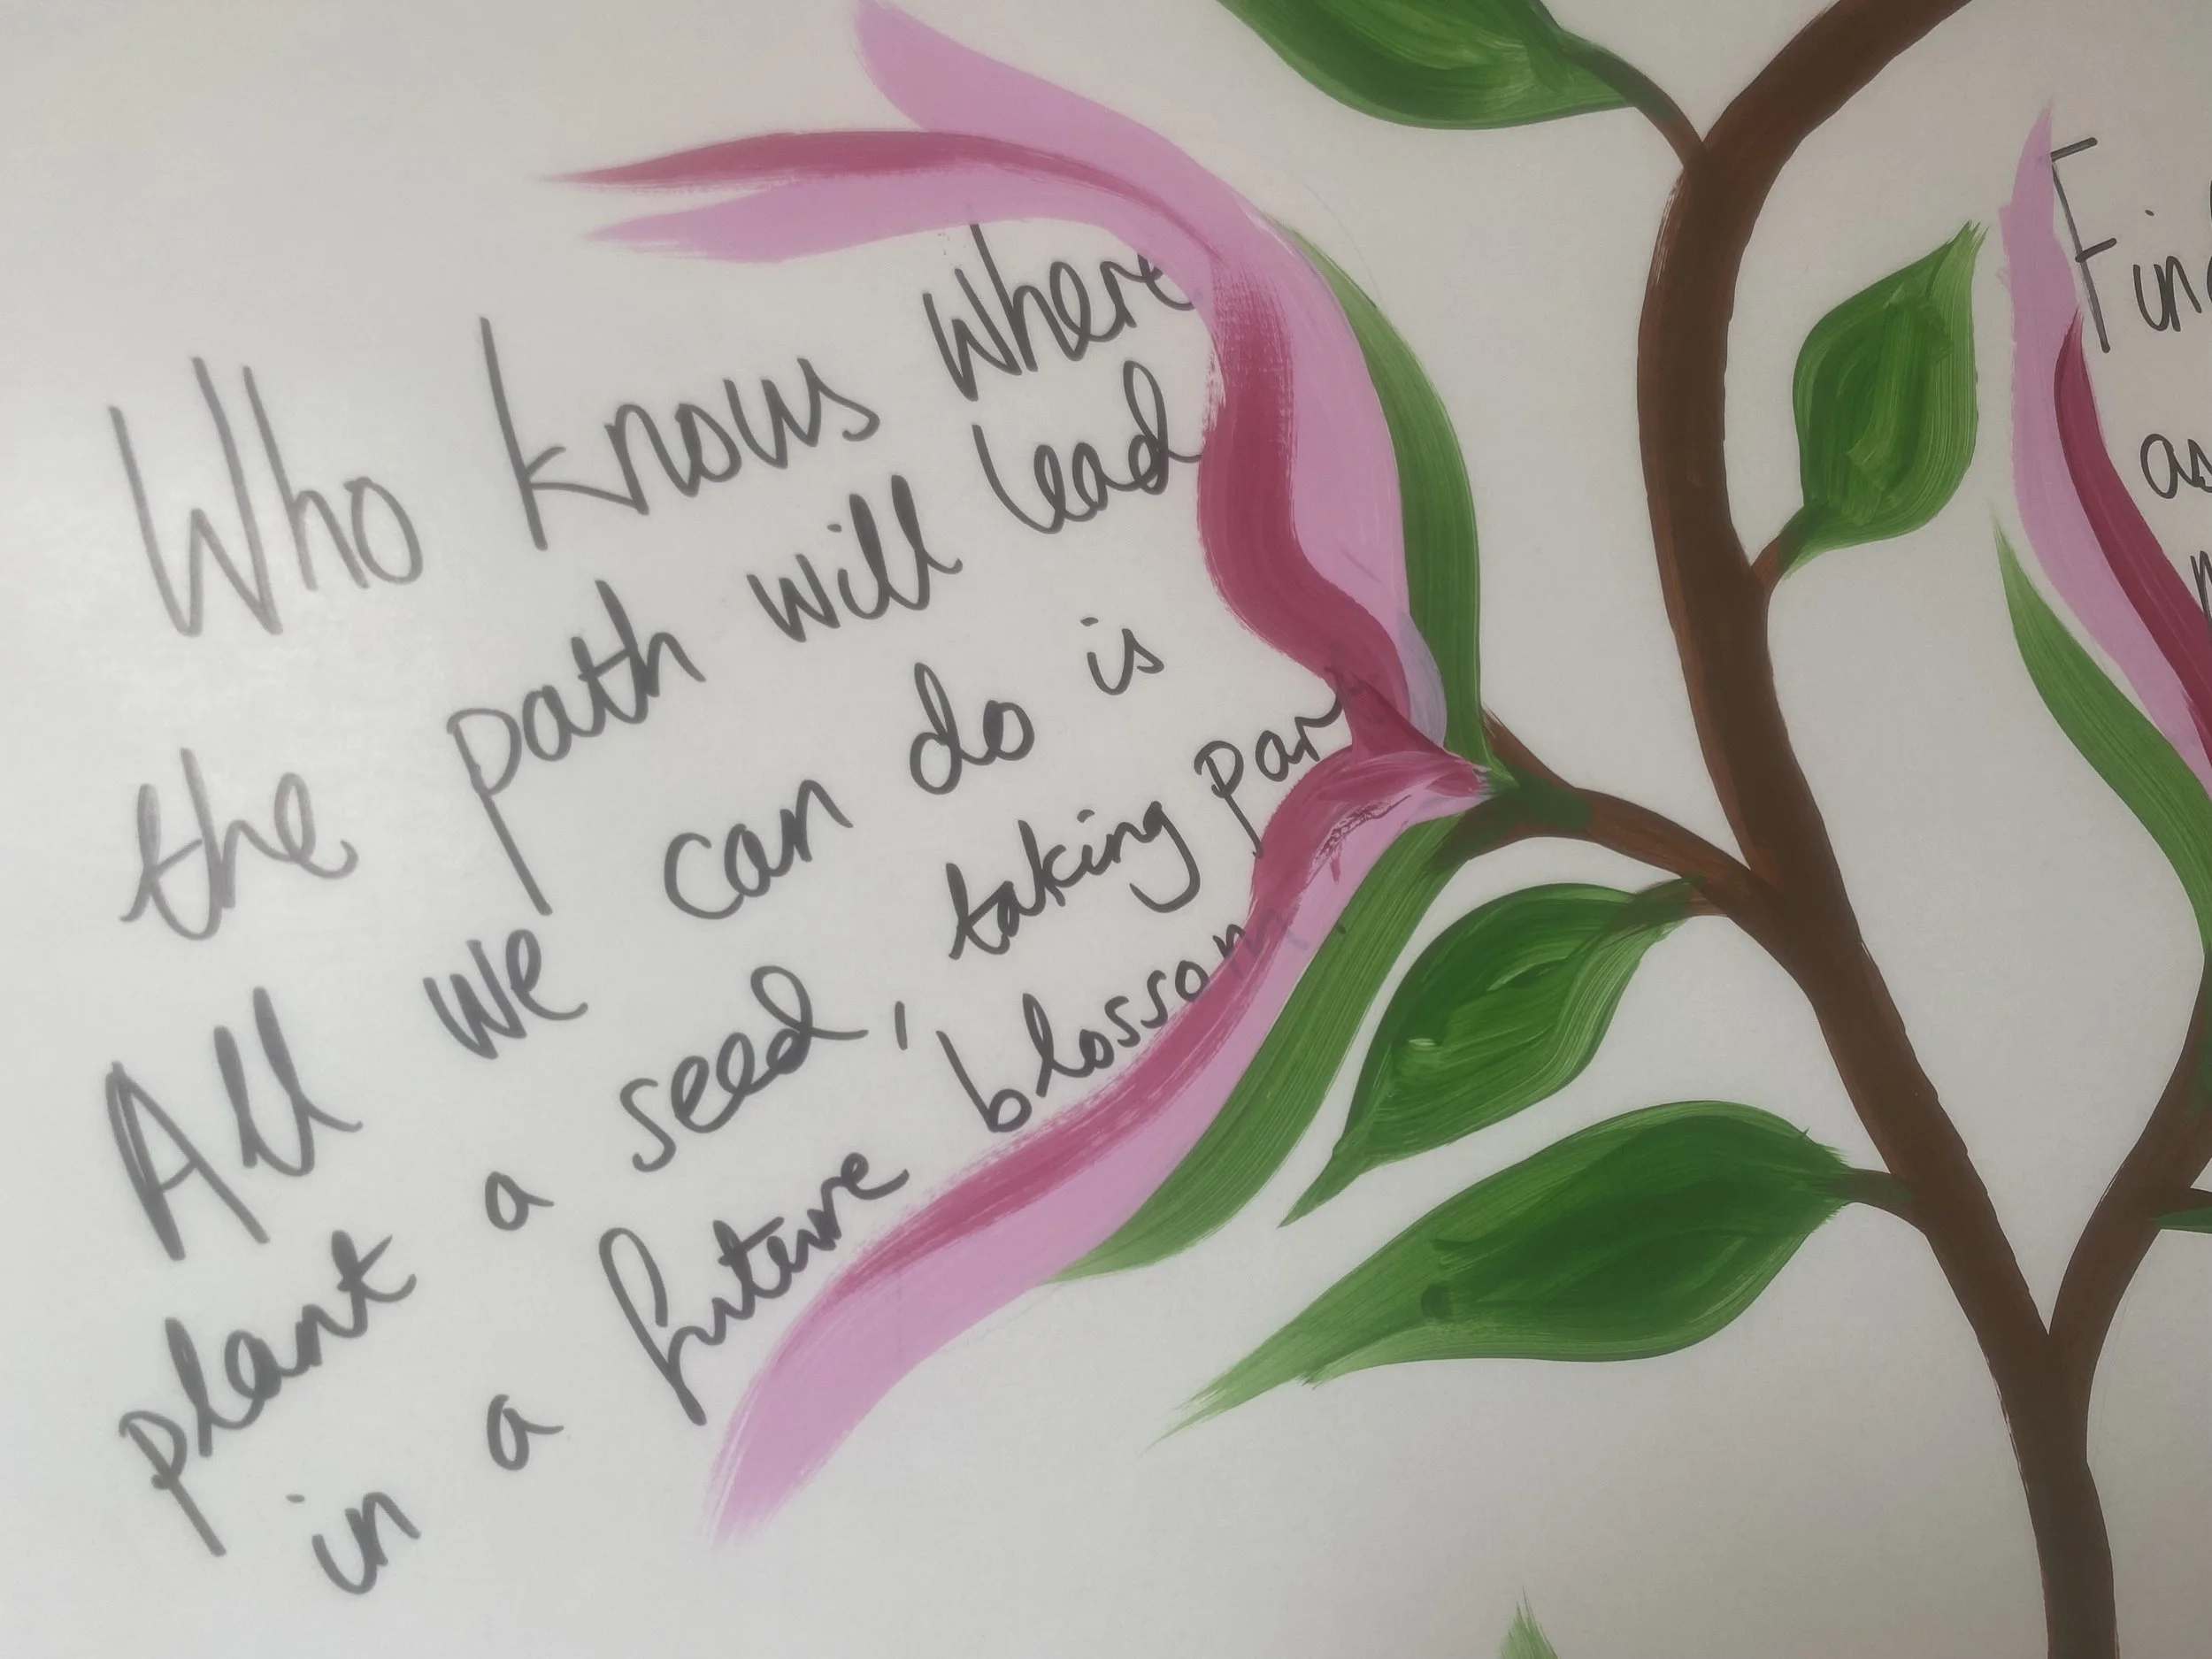 Who knows where
the path will lead
All we can do is
plant a seed, taking part
in a future blossom.
as